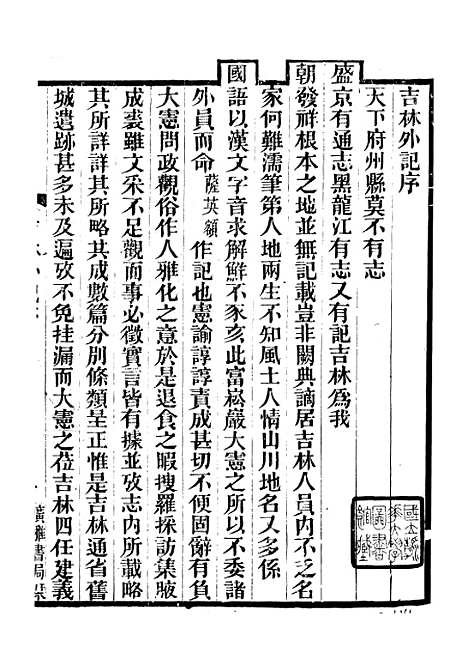 吉林外記序
天下府州縣莫不有志
盛京有通志黑龍江有志又有記吉林為我
朝發祥根本之地並無記載豈非闕典謫居吉林人員內不乏名
家何難濡筆第人地兩生不知風土人情山川地名又多係
國語以漢文字音求解鮮不豕亥此富崧巖大憲之所以不委諸
外員而命薩英額作記也憲諭諄諄責成甚切不便固辭有負
大憲問政觀俗作人雅化之意於是退食之暇搜羅採訪集腋
成裘雖文采不足觀而事必徵實言皆有據並攷志內所載略
其所詳詳其所略共成數篇分別條類呈正惟是吉林通省舊
城遺跡甚多未及遍攷不免挂漏而大憲之莅吉林四任建義
廣雅書局栞